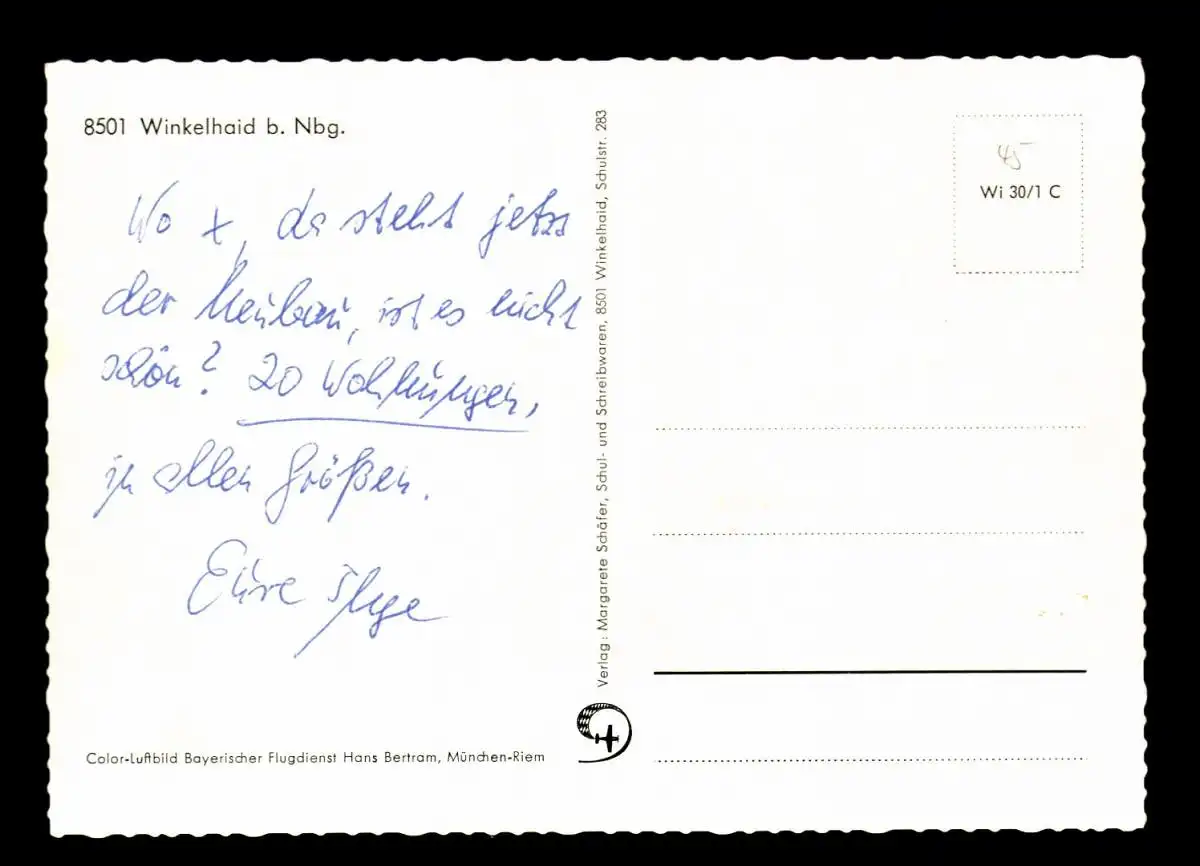 8501 Winkelhaid b. Nbg.
Wo x, da steht jetzt
der Neubau, ist es nicht
schön? 20 Wohnungen,
in allen Größen.
Eure Inge
Color-Luftbild Bayerischer Flugdienst Hans Bertram, München-Riem
Verlag: Margarete Schäfer, Schul- und Schreibwaren, 8501 Winkelhaid, Schulstr. 283
45
Wi 30/1 C